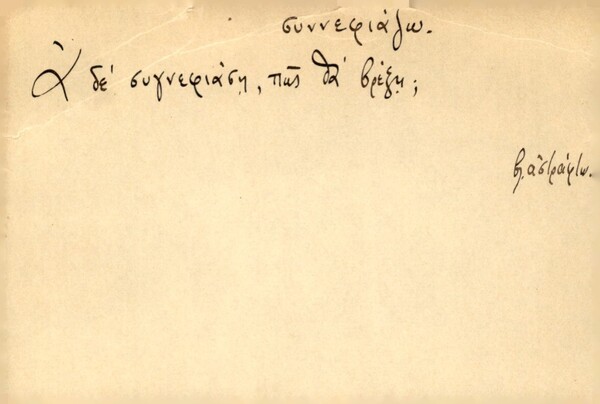 συννεφιάζω.
Ἀ δέ συγνεφιάσῃ, πῶς θά βρέξῃ;
β. ἀστράφτω.